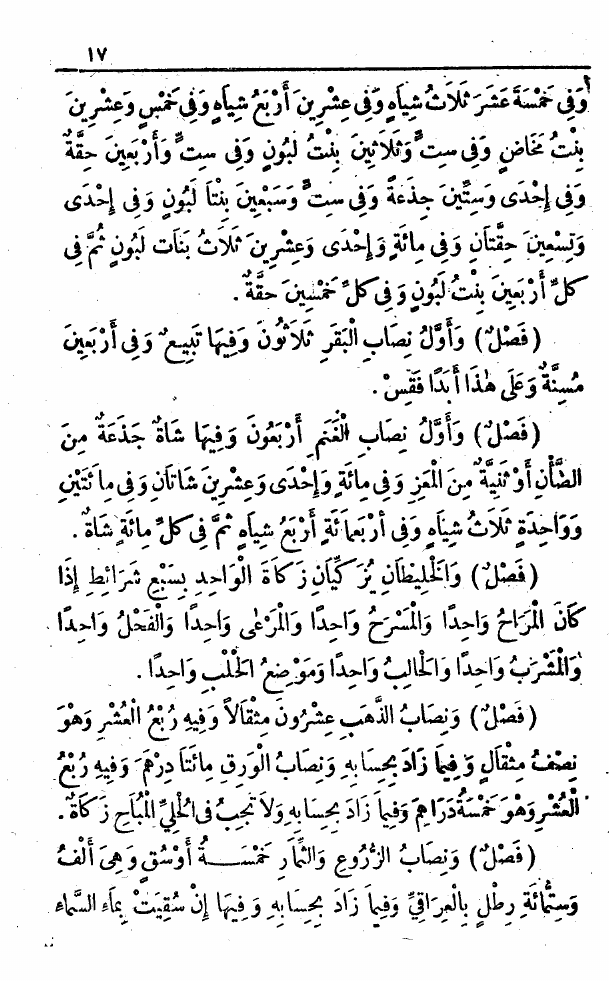 ١٧
وَفِى خَمْسَةَ عَشَرَ ثَلَاثُ شِيَاهٍ وَفِى عِشْرِينَ أَرْبَعُ شِيَاهٍ وَفِى خَمْسٍ وَعِشْرِينَ
بِنْتُ مَخَاضٍ وَفِى سِتٍّ وَثَلَاثِينَ بِنْتُ لَبُونٍ وَفِى سِتٍّ وَأَرْبَعِينَ حِقَّةٌ
وَفِى إِحْدَى وَسِتِّينَ جِذَعَةٌ وَفِى سِتٍّ وَسَبْعِينَ بِنْتَا لَبُونٍ وَفِى إِحْدَى
وَتِسْعِينَ حِقَّتَانِ وَفِى مِائَةٍ وَإِحْدَى وَعِشْرِينَ ثَلَاثُ بَنَاتِ لَبُونٍ ثُمَّ فِى
كُلِّ أَرْبَعِينَ بِنْتُ لَبُونٍ وَفِى كُلِّ خَمْسِينَ حِقَّةٌ .
(فَصْلٌ) وَأَوَّلُ نِصَابِ الْبَقَرِ ثَلَاثُونَ وَفِيهَا تَبِيعٌ وَفِى أَرْبَعِينَ
مُسِنَّةٌ وَعَلَى هٰذَا أَبَدًا فَقِسْ .
(فَصْلٌ) وَأَوَّلُ نِصَابِ الْغَنَمِ أَرْبَعُونَ وَفِيهَا شَاةٌ جَذَعَةٌ مِنَ
الضَّأْنِ أَوْ ثَنِيَّةٌ مِنَ الْمَعَزِ وَفِى مِائَةٍ وَإِحْدَى وَعِشْرِينَ شَاتَانِ وَفِى مِائَتَيْنِ
وَوَاحِدَةٍ ثَلَاثُ شِيَاهٍ وَفِى أَرْبَعِمِائَةٍ أَرْبَعُ شِيَاهٍ ثُمَّ فِى كُلِّ مِائَةٍ شَاةٌ .
(فَصْلٌ) وَالْخَلِيطَانِ يُزَكِّيَانِ زَكَاةَ الْوَاحِدِ بِسَبْعِ شَرَائِطَ إِذَا
كَانَ الْمَرَاحُ وَاحِدًا وَالْمَسْرَحُ وَاحِدًا وَالْمَرْعٰى وَاحِدًا وَالْفَحْلُ وَاحِدًا
وَالْمَشْرَبُ وَاحِدًا وَالْحَالِبُ وَاحِدًا وَمَوْضِعُ الْحَلْبِ وَاحِدًا .
(فَصْلٌ) وَنِصَابُ الذَّهَبِ عِشْرُونَ مِثْقَالًا وَفِيهِ رُبْعُ الْعُشْرِ وَهُوَ
نِصْفُ مِثْقَالٍ وَفِيمَا زَادَ بِحِسَابِهِ وَنِصَابُ الْوَرِقِ مِائَتَا دِرْهَمٍ وَفِيهِ رُبْعُ
الْعُشْرِ وَهُوَ خَمْسَةُ دَرَاهِمَ وَفِيمَا زَادَ بِحِسَابِهِ وَلَا تَجِبُ فِى الْحُلِيِّ الْمُبَاحِ زَكَاةٌ .
(فَصْلٌ) وَنِصَابُ الزُّرُوعِ وَالثِّمَارِ خَمْسَةُ أَوْسُقٍ وَهِىَ أَلْفُ
وَسِتُّمِائَةِ رِطْلٍ بِالْعِرَاقِيِّ وَفِيمَا زَادَ بِحِسَابِهِ وَفِيهَا إِنْ سُقِيَتْ بِمَاءِ السَّمَاءِ